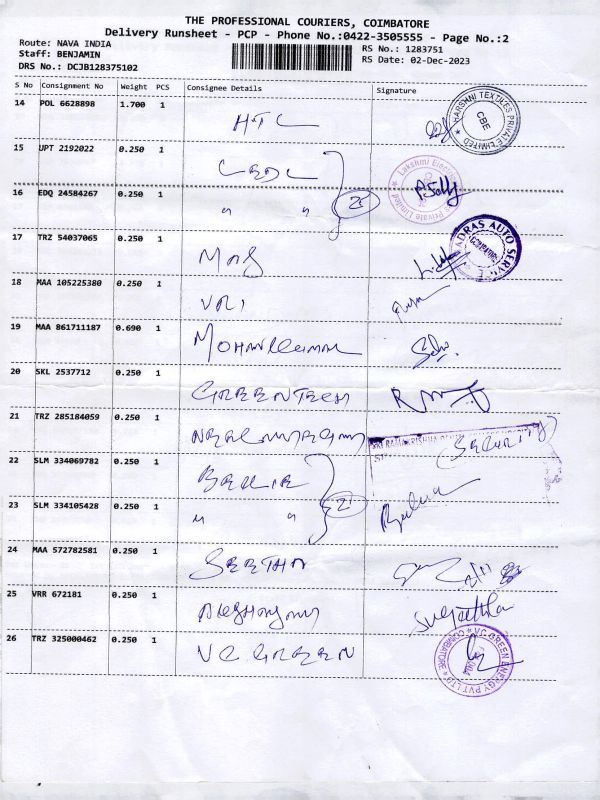 THE PROFESSIONAL COURIERS, COIMBATORE
Delivery Runsheet - PCP - Phone No.:0422-3505555 - Page No.:2
Route: NAVA INDIA
Staff: BENJAMIN
DRS No.: DCJB128375102
RS No.: 1283751
RS Date: 02-Dec-2023
S No Consignment No Weight PCS Consignee Details Signature
14 POL 6628898 1.700 1 HTC
HARSHNI TEXTILES PRIVATE LIMITED CBE
15 UPT 2192022 0.250 1
Lakshmi Private Limited
16 EDQ 24584267 0.250 1 " "
17 TRZ 54037065 0.250 1
MADRAS AUTO SERVICE
18 MAA 105225380 0.250 1
19 MAA 861711187 0.690 1
20 SKL 2537712 0.250 1 GREENTECH
21 TRZ 285184059 0.250 1
SECURITY
22 SLM 334069782 0.250 1
23 SLM 334105428 0.250 1 " "
24 MAA 572782581 0.250 1 SEETHA
25 VRR 672181 0.250 1
Sujeetha
26 TRZ 325000462 0.250 1 VC GREEN
VC GREEN ENERGY PVT LTD COIMBATORE